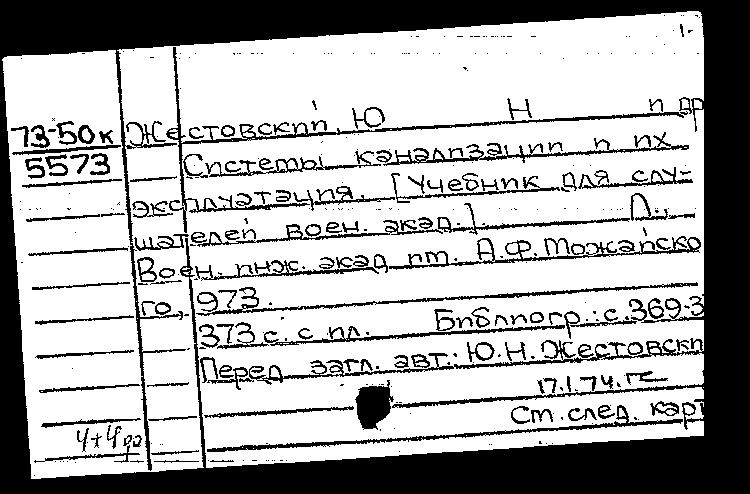 1-
73-50к Жестовский, Ю Н и др
5573 Системы канализации и их
эксплуатация. [Учебник для слу-
шателей воен. акад.]. Л.,
Воен. инж. акад им. А.Ф. Можайско
го, 973.
373 с. с ил. Библиогр.: с. 369-3
Перед загл. авт.: Ю.Н. Жестовски
17.1.74.
Ст. след. карт
4+4